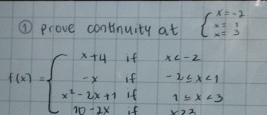 ① prove continuity at { x = -2
x = 1
x = 3
f(x) = { x+4 if x < -2
-x if -2 ≤ x < 1
x² - 2x + 1 if 1 ≤ x < 3
10 - 2x if x ≥ 3